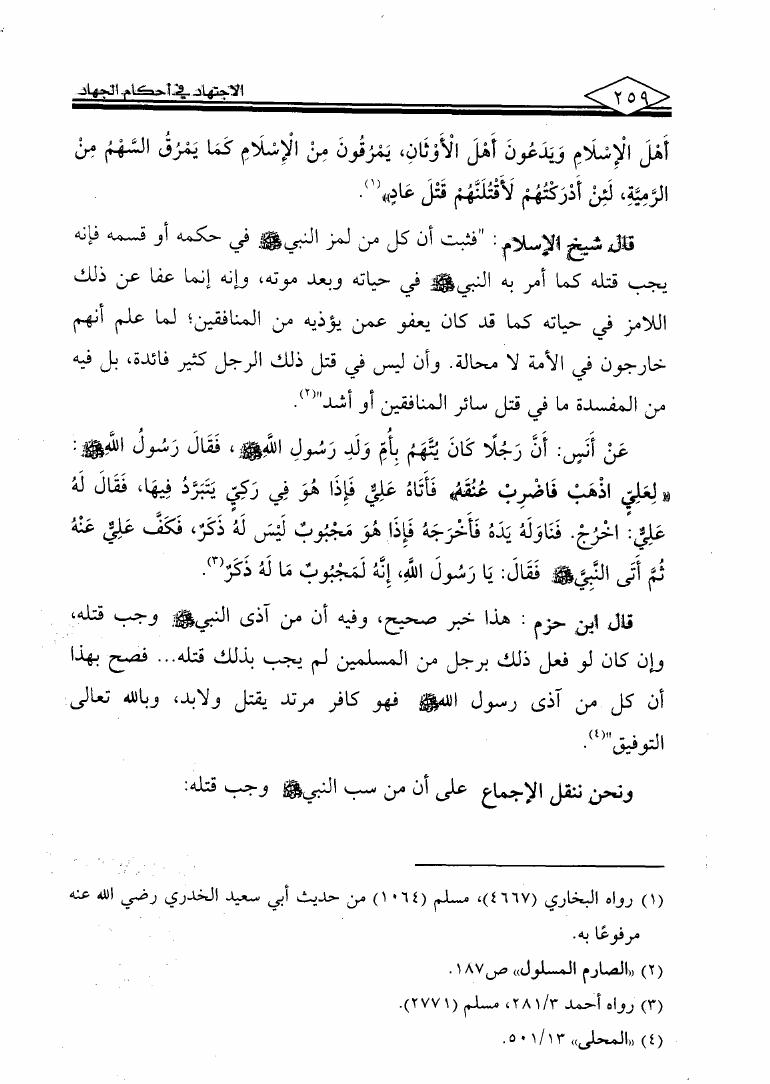 الاجتهاد في أحكام الجهاد
٢٥٩
أَهْلَ الْإِسْلَامِ وَيَدَعُونَ أَهْلَ الْأَوْثَانِ، يَمْرُقُونَ مِنْ الْإِسْلَامِ كَمَا يَمْرُقُ السَّهْمُ مِنْ
الرَّمِيَّةِ، لَئِنْ أَدْرَكْتُهُمْ لَأَقْتُلَنَّهُمْ قَتْلَ عَادٍ»(١).
قال شيخ الإسلام: "فثبت أن كل من لمز النبي ﷺ في حكمه أو قسمه فإنه
يجب قتله كما أمر به النبي ﷺ في حياته وبعد موته، وإنه إنما عفا عن ذلك
اللامز في حياته كما قد كان يعفو عمن يؤذيه من المنافقين؛ لما علم أنهم
خارجون في الأمة لا محالة. وأن ليس في قتل ذلك الرجل كثير فائدة، بل فيه
من المفسدة ما في قتل سائر المنافقين أو أشد"(٢).
عَنْ أَنَسٍ: أَنَّ رَجُلًا كَانَ يُتَّهَمُ بِأُمِّ وَلَدِ رَسُولِ اللَّهِ ﷺ، فَقَالَ رَسُولُ اللَّهِ ﷺ:
« لِعَلِيٍّ اذْهَبْ فَاضْرِبْ عُنُقَهُ» فَأَتَاهُ عَلِيٌّ فَإِذَا هُوَ فِي رَكِيٍّ يَتَبَرَّدُ فِيهَا، فَقَالَ لَهُ
عَلِيٌّ: اخْرُجْ. فَنَاوَلَهُ يَدَهُ فَأَخْرَجَهُ فَإِذَا هُوَ مَجْبُوبٌ لَيْسَ لَهُ ذَكَرٌ، فَكَفَّ عَلِيٌّ عَنْهُ
ثُمَّ أَتَى النَّبِيَّ ﷺ فَقَالَ: يَا رَسُولَ اللَّهِ، إِنَّهُ لَمَجْبُوبٌ مَا لَهُ ذَكَرٌ(٣).
قال ابن حزم : هذا خبر صحيح، وفيه أن من آذى النبي ﷺ وجب قتله،
وإن كان لو فعل ذلك برجل من المسلمين لم يجب بذلك قتله... فصح بهذا
أن كل من آذى رسول الله ﷺ فهو كافر مرتد يقتل ولابد، وبالله تعالى
التوفيق"(٤).
ونحن ننقل الإجماع على أن من سب النبي ﷺ وجب قتله:
(١) رواه البخاري (٤٦٦٧)، مسلم (١٠٦٤) من حديث أبي سعيد الخدري رضي الله عنه
مرفوعًا به.
(٢) «الصارم المسلول» ص١٨٧.
(٣) رواه أحمد ٢٨١/٣، مسلم (٢٧٧١).
(٤) «المحلى» ٥٠١/١٣.